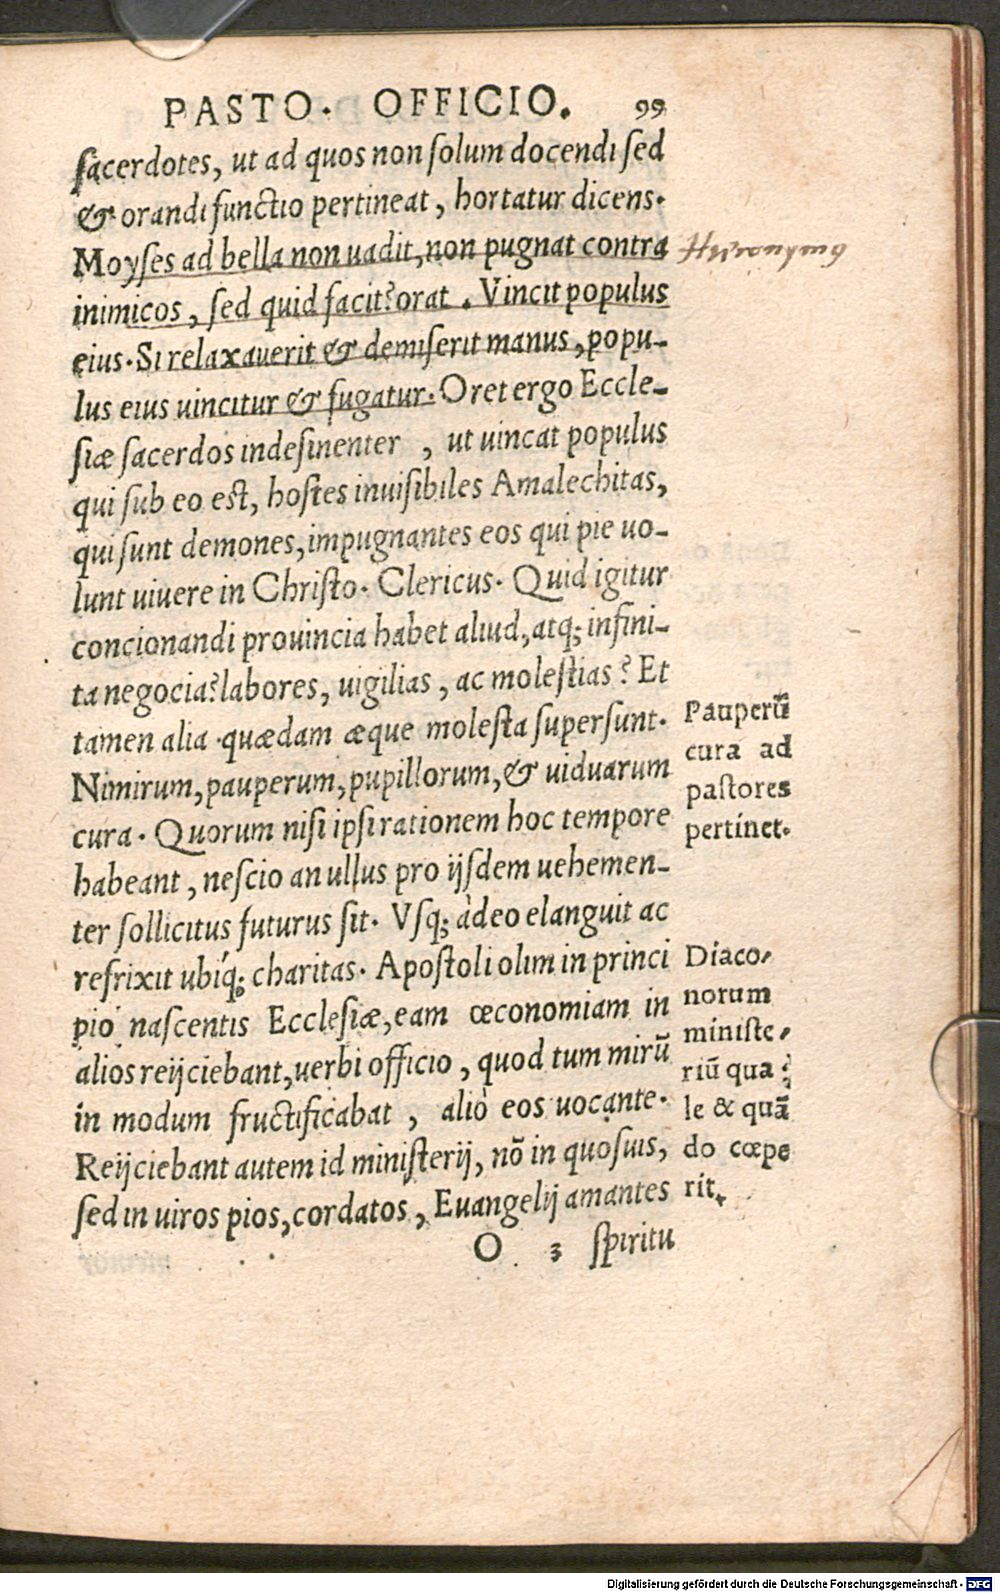 PASTO. OFFICIO. 99
sacerdotes, ut ad quos non solum docendi sed
& orandi functio pertineat, hortatur dicens.
Moyses ad bella non uadit, non pugnat contra
Hieronymus
inimicos, sed quid facit? orat. Vincit populus
eius. Si relaxauerit & demiserit manus, popu-
lus eius uincitur & fugatur. Oret ergo Eccle-
siæ sacerdos indesinenter, ut uincat populus
qui sub eo est, hostes inuisibiles Amalechitas,
qui sunt demones, impugnantes eos qui pie uo-
lunt uiuere in Christo. Clericus. Quid igitur
concionandi prouincia habet aliud, atq; infini-
ta negocia? labores, uigilias, ac molestias? Et
tamen alia quædam æque molesta supersunt.
Nimirum, pauperum, pupillorum, & uiduarum
cura. Quorum nisi ipsi rationem hoc tempore
habeant, nescio an ullus pro ijsdem uehemen-
ter sollicitus futurus sit. Vsq; àdeo elanguit ac
refrixit ubíq; charitas. Apostoli olim in princi
pio nascentis Ecclesiæ, eam œconomiam in
alios reijciebant, uerbi officio, quod tum mirũ
in modum fructificabat, aliò eos uocante.
Reijciebant autem id ministerij, nõ in quosuis,
sed in uiros pios, cordatos, Euangelij amantes
O 3 spiritu
Pauperũ
cura ad
pastores
pertinet.
Diaco-
norum
ministe-
riũ qua-
le & quã
do cœpe
rit.
Digitalisierung gefördert durch die Deutsche Forschungsgemeinschaft - DFG